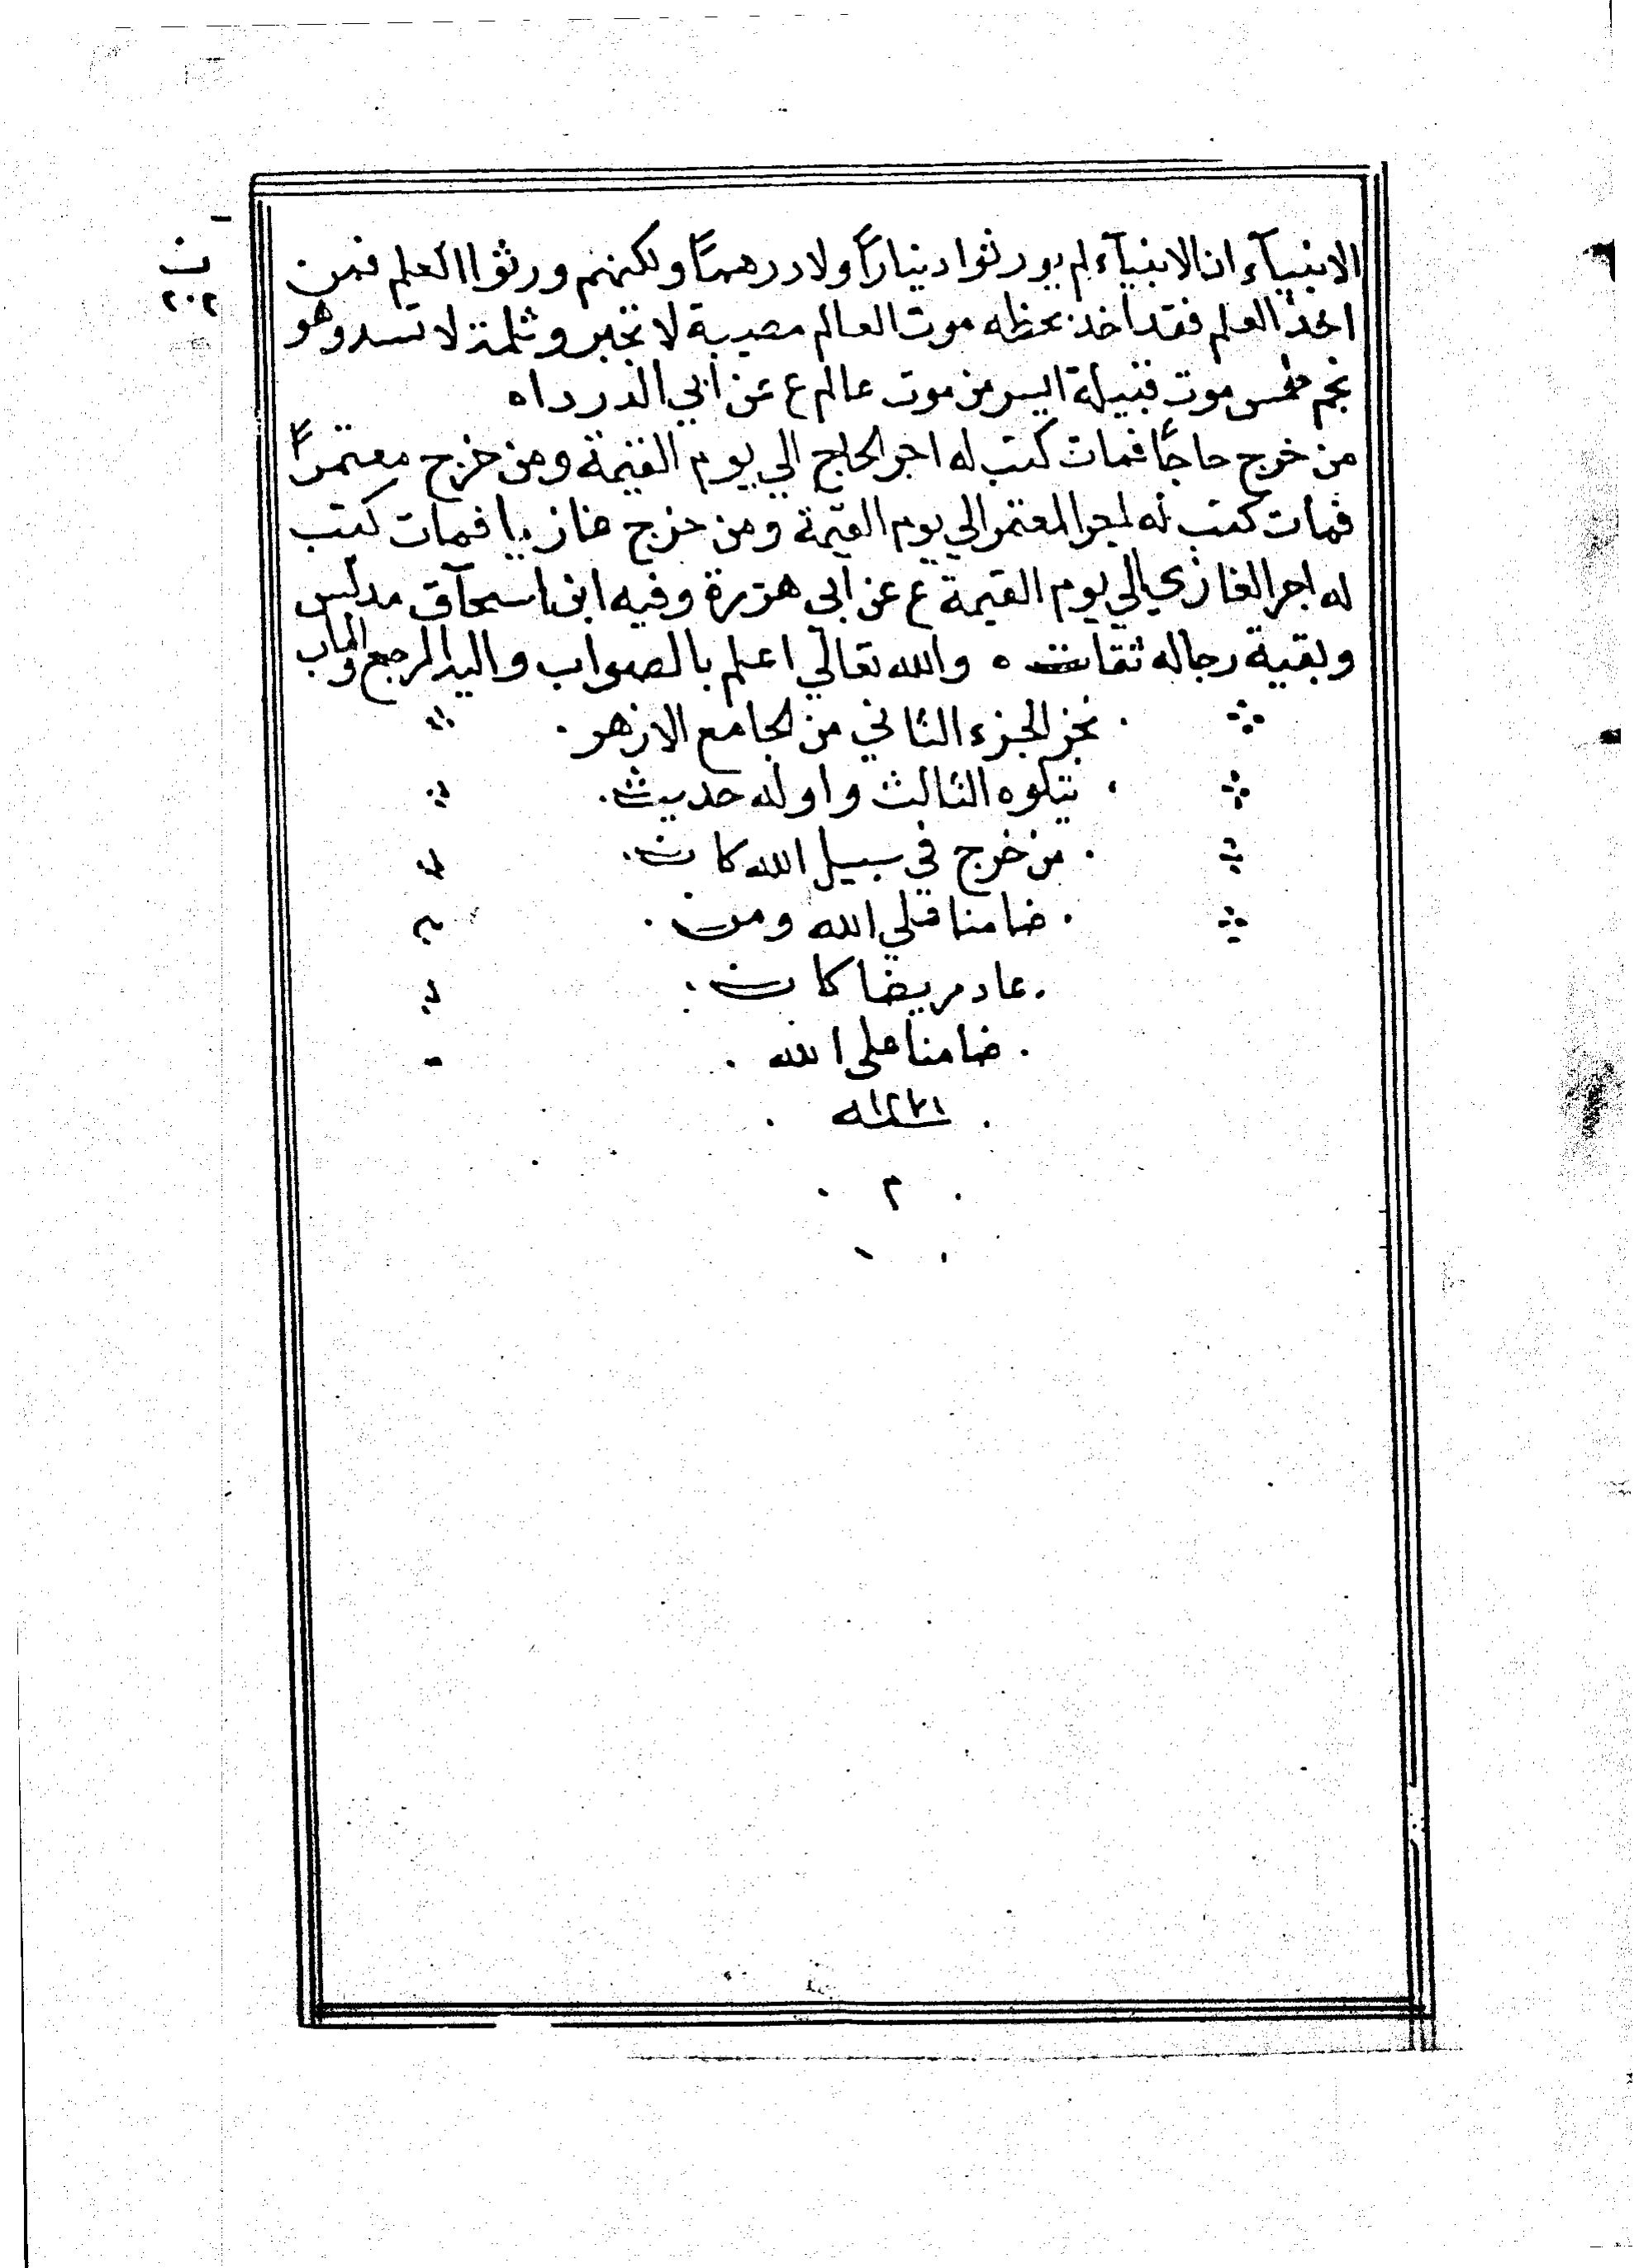 ن
٢٠٢
الانبيآء ان الانبيآء لم يورثوا دينارًا ولا درهمًا ولكنهم ورثوا العلم فمن
اخذ العلم فقد اخذ بحظه موت العالم مصيبة لا تجبر وثلمة لا تسد وهو
نجم طمس موت قبيلة ايسر من موت عالم ع عن ابي الدرداه
من خرج حاجًا فمات كتب له اجر الحاج الي يوم القيمة ومن خرج معتمرًا
فمات كتب له اجر المعتمر الي يوم القيمة ومن خرج غازيا فمات كتب
له اجر الغازي الي يوم القيمة ع عن ابي هريرة وفيه ابن اسحآق مدلس
وبقية رجاله ثقات ه والله تعالي اعلم بالصواب واليه المرجع والمآب
نجز الجزء الثاني من الجامع الازهر
يتلوه الثالث واوله حديث
من خرج في سبيل الله كان
ضامنا علي الله ومن
عاد مريضا كان
ضامنا علي الله
م